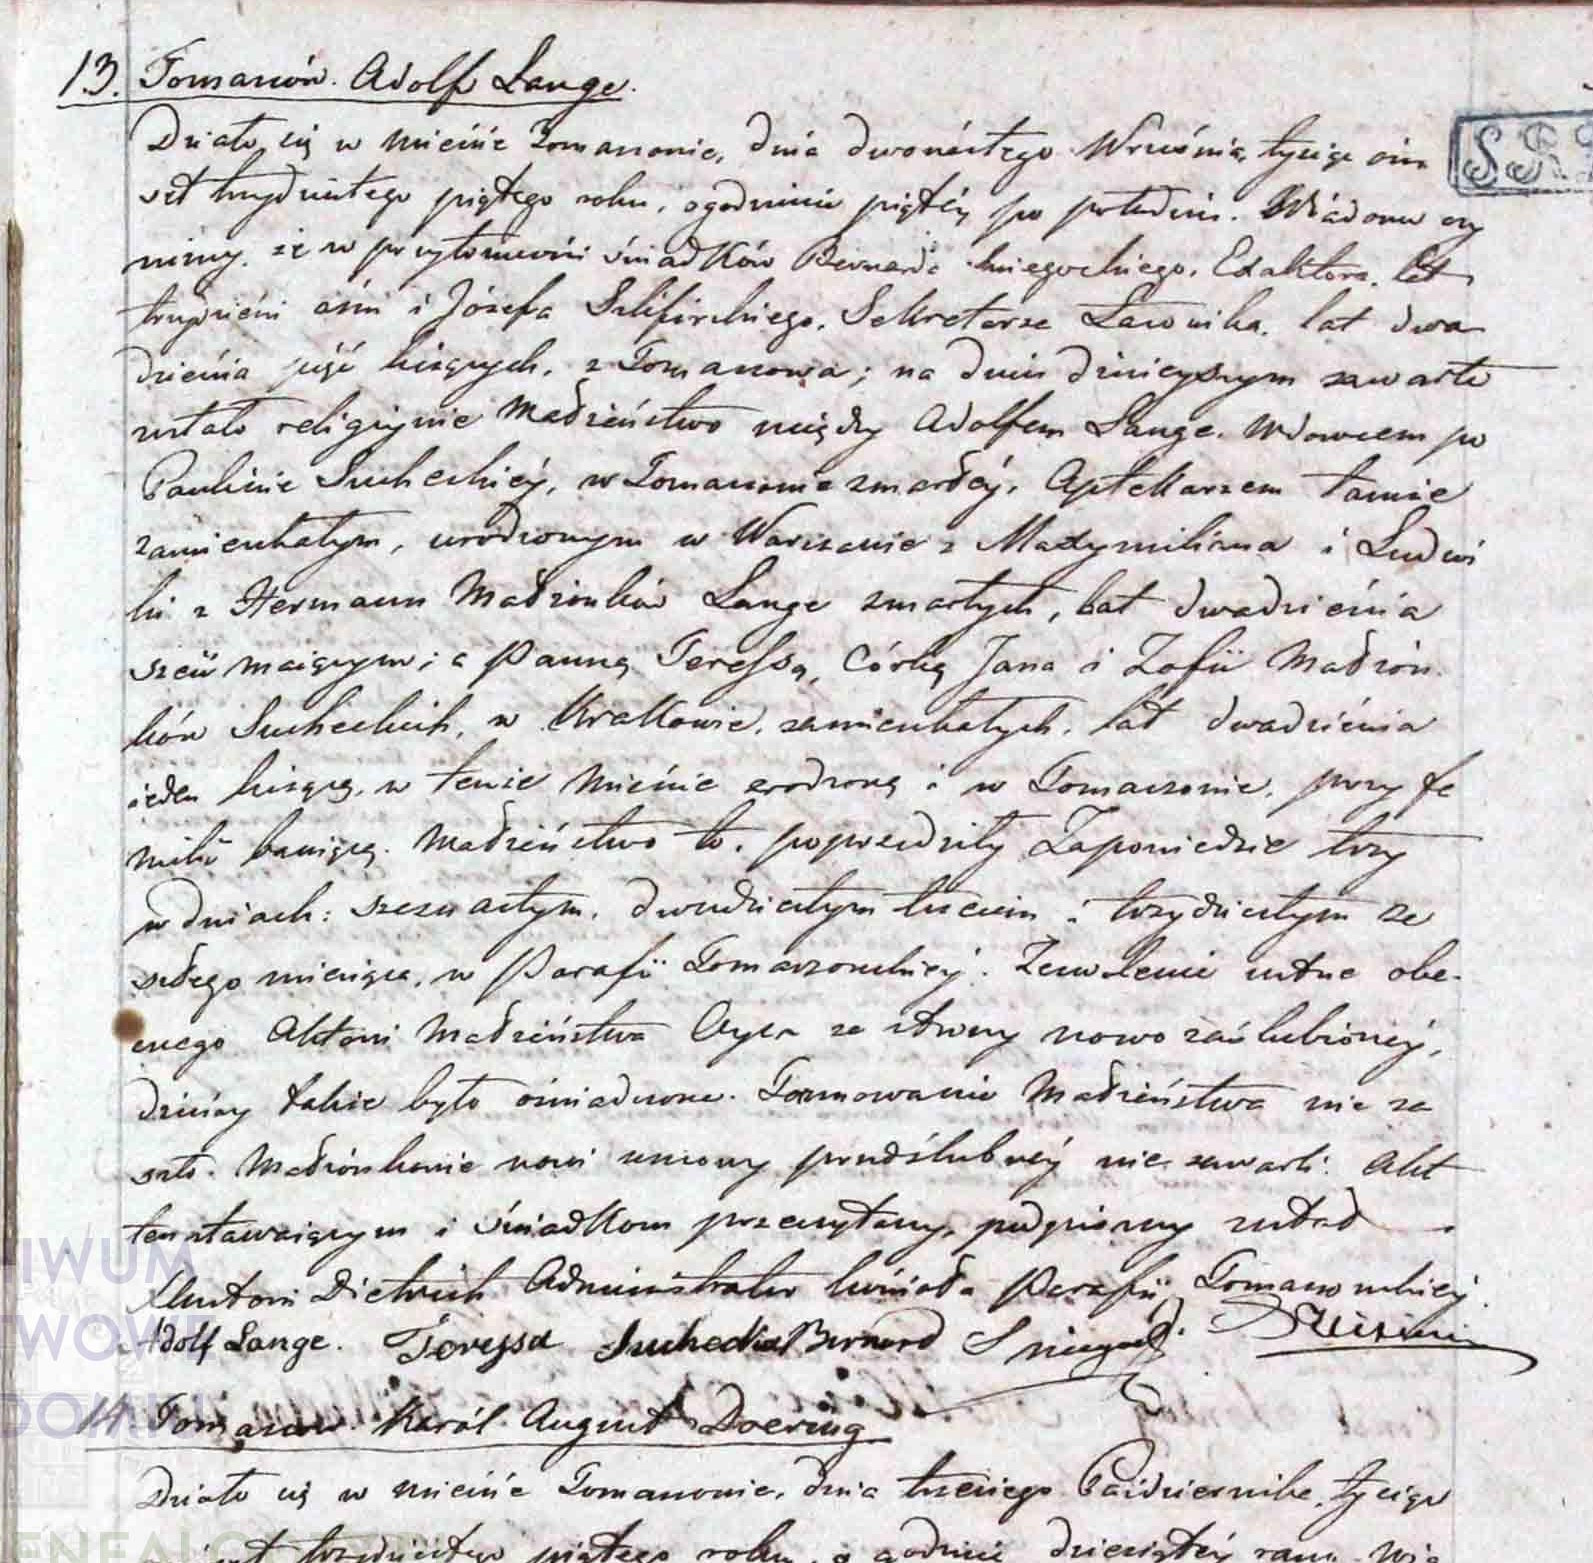 13. Tomaszów. Adolf Lange.
Działo się w mieście Tomaszowie, dnia dwónastego Września, tysiąc ośm
set trzydziestego piątego roku, o godzinie piątéy po południu. Wiadomo czy
nimy, że w przytomności świadków Bernarda Exaktora, lat
trzydzieści ośm i Józefa Sekretarza Ławnika, lat dwa
dzieścia pięć liczących, z Tomaszowa; na dniu dzisieyszym zawarte
zostało religiynie Małżeństwo między Adolfem Lange, Wdowcem po
Paulinie Sucheckiéy, w Tomaszowie zmarłéy, Aptekarzem tamże
zamieszkałym, urodzonym w Warszawie z Maxymiliana i Ludwi
ki z Hermann Małżonków Lange zmarłych, lat dwadzieścia
sześć maiącym; a Panną Teressą, Córką Jana i Zofii Małżon
ków Sucheckich, w Krakowie, zamieszkałych, lat dwadzieścia
ieden liczącą, w temże mieście zrodzoną i w Tomaszowie, przy fa
milii bawiącą. Małżeństwo to, poprzedziły Zapowiedzie trzy
w dniach: szesnastym, dwudziestym trzecim i trzydziestym ze
szłego miesiąca, w Parafii Tomaszowskiéy. Zezwolenie ustne obe-
cnego Aktowi Małżeństwa Oyca ze strony nowo zaślubionéy,
dzisiay także było oświadczone. Tamowanie Małżeństwa nie za
szło. Małżonkowie nowi umowy przedślubnéy nie zawarli. Akt
ten stawaiącym i świadkom przeczytany, podpisany został
Antoni Dietrich Administrator Kościoła Parafii Tomaszowskiéy.
Adolf Lange. Teressa Suchecka Bernard
14. Tomaszów. Karól August Doering
Działo się w mieście Tomaszowie, dnia trzeciego Października, tysiąc
set trzydziestego piątego roku, o godzinie dziesiątéy rano. Wia